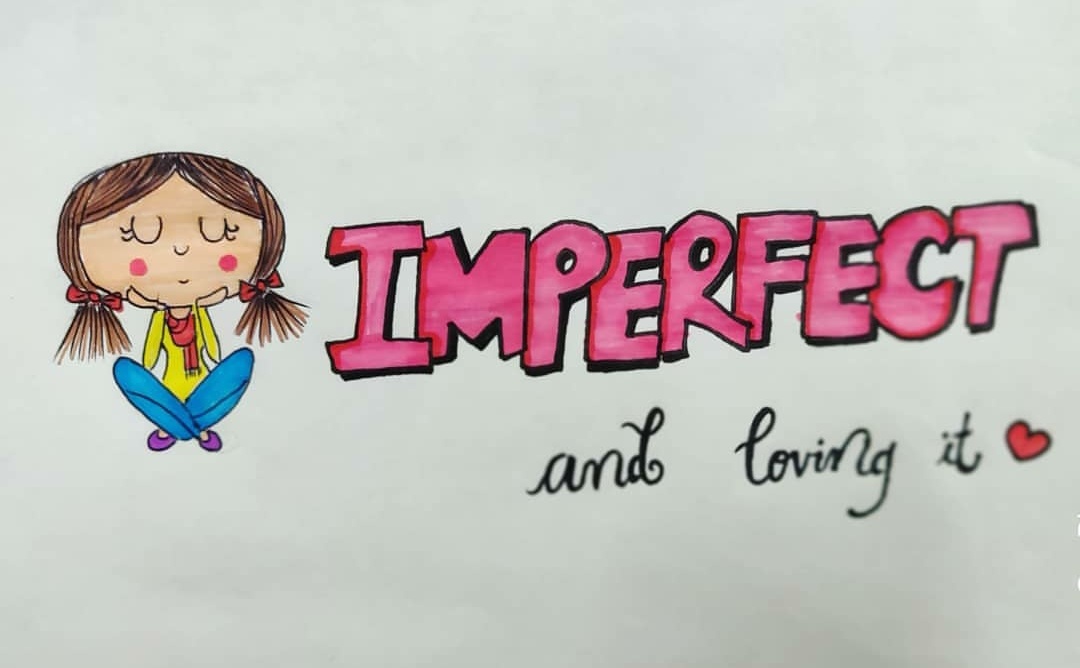 IMPERFECT
and loving it